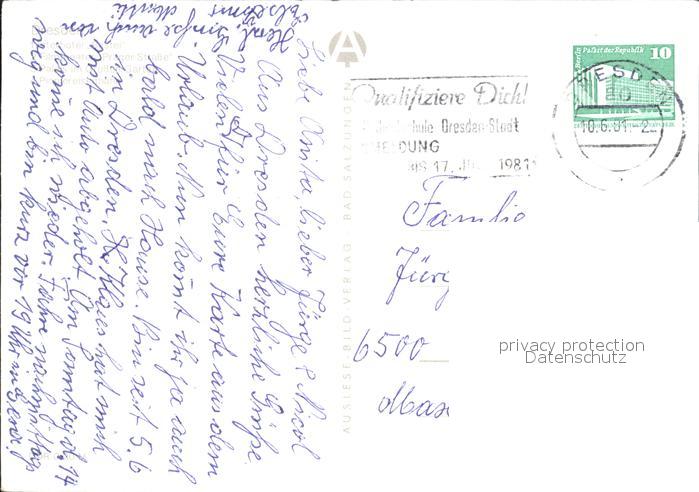 Liebe Anita, lieber Jürg & Nicol
Aus Dresden herzliche Grüße.
Vielen Dank für Eure Karte aus dem
Urlaub. Nun kommt ihr ja auch
bald nach Hause. Bin seit 5.6
in Dresden. K. Klaus hat mich
mit Auto abgeholt. Am Sonntag d. 14
komme ich wieder. Fahre nachmittags
weg und bin kurz vor 19 Uhr in
Herzl. Grüße auch von
Qualifiziere Dich!
Dresden-Stadt
MELDUNG
17. 1981
Palast der Republik 10
DRESDEN
10.6.81
Familie
Jürg
6500
AUSLESE-BILD-VERLAG - BAD SALZUNGEN
privacy protection
Datenschutz